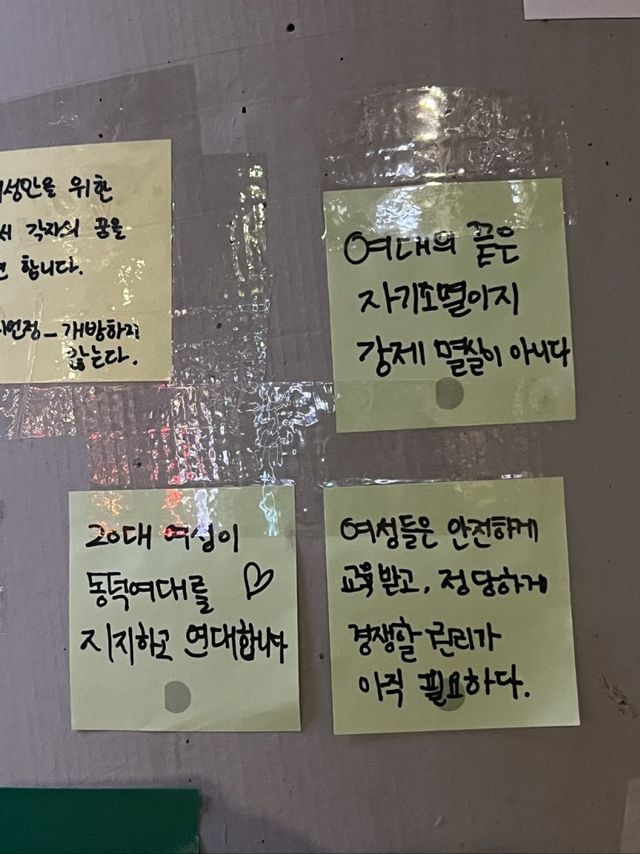 위한
각자의 꿈을
합니다.
개방하지
않는다.
여대의 끝은
자기소멸이지
강제 멸실이 아니다
20대 여성이
동덕여대를 ♡
지지하고 연대합니다
여성들은 안전하게
교육받고, 정당하게
경쟁할 권리가
아직 필요하다.